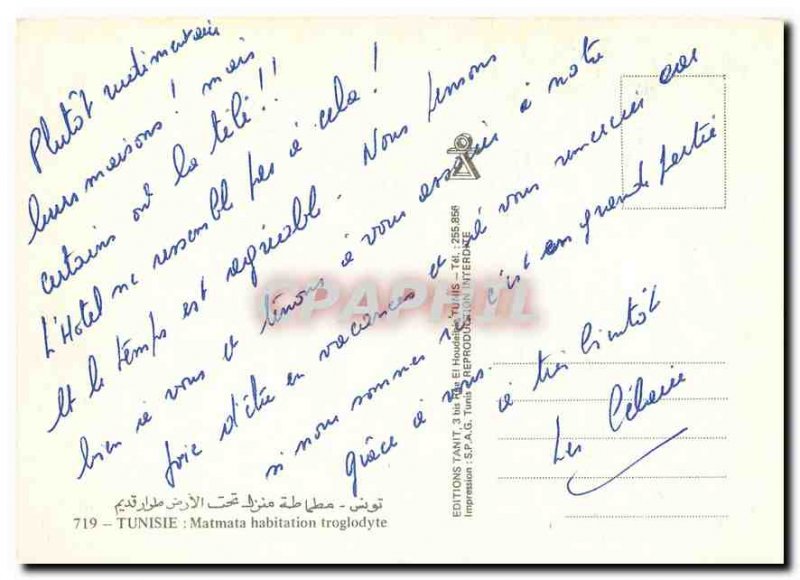 Plutôt rudimentaire
leurs maisons! mais
certains ont la télé!!
L'Hotel ne ressemble pas à cela!
Et le temps est agréable. Nous pensons
bien à vous et tenons à vous associer à notre
joie d'être en vacances et à vous remercier car
si nous sommes ici c'est en grande partie
grâce à vous.
à très bientôt
Les
تونس - مطماطة منزل تحت الأرض طراز قديم
719 – TUNISIE : Matmata habitation troglodyte
EDITIONS TANIT, 3 bis Rue El Houdeibia, TUNIS – Tél. : 255.856
Impression : S.P.A.G. Tunis – REPRODUCTION INTERDITE
CPAPHIL